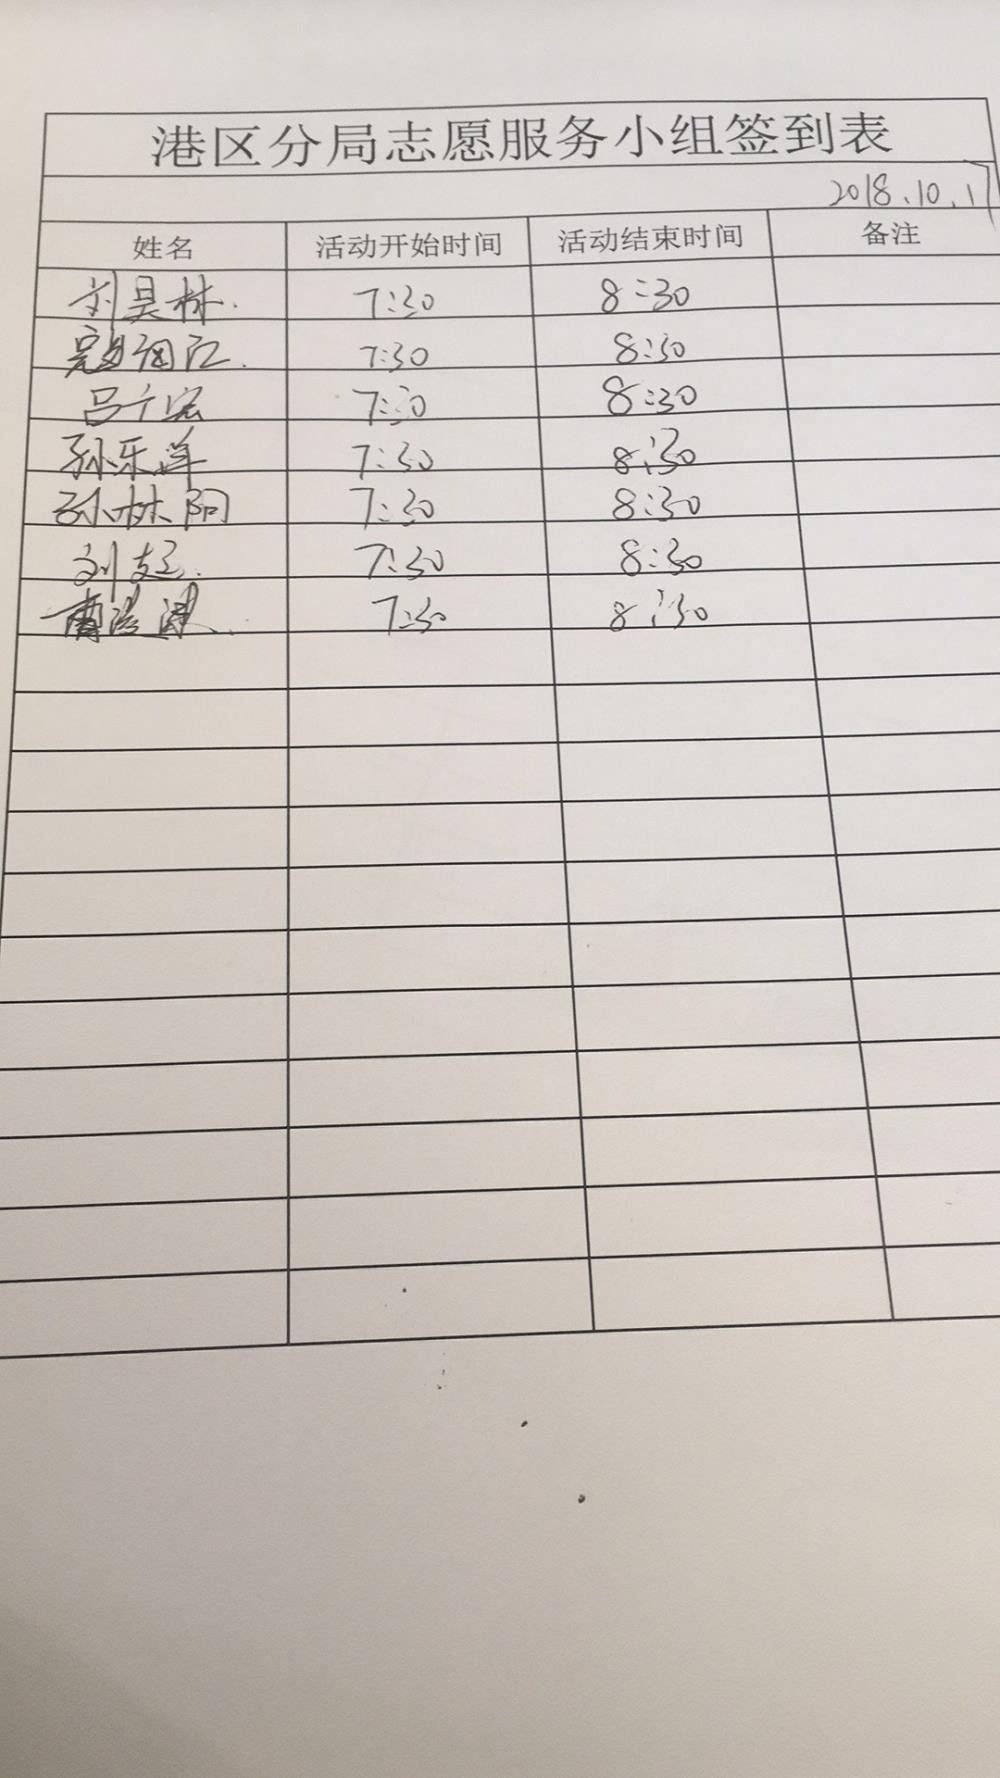 港区分局志愿服务小组签到表
2018.10.17
姓名 活动开始时间 活动结束时间 备注
刘昊林. 7:30 8:30
7:30 8:30
吕广宏 7:30 8:30
孙乐洋 7:30 8:30
孙林阳 7:30 8:30
刘超. 7:30 8:30
7:30 8:30